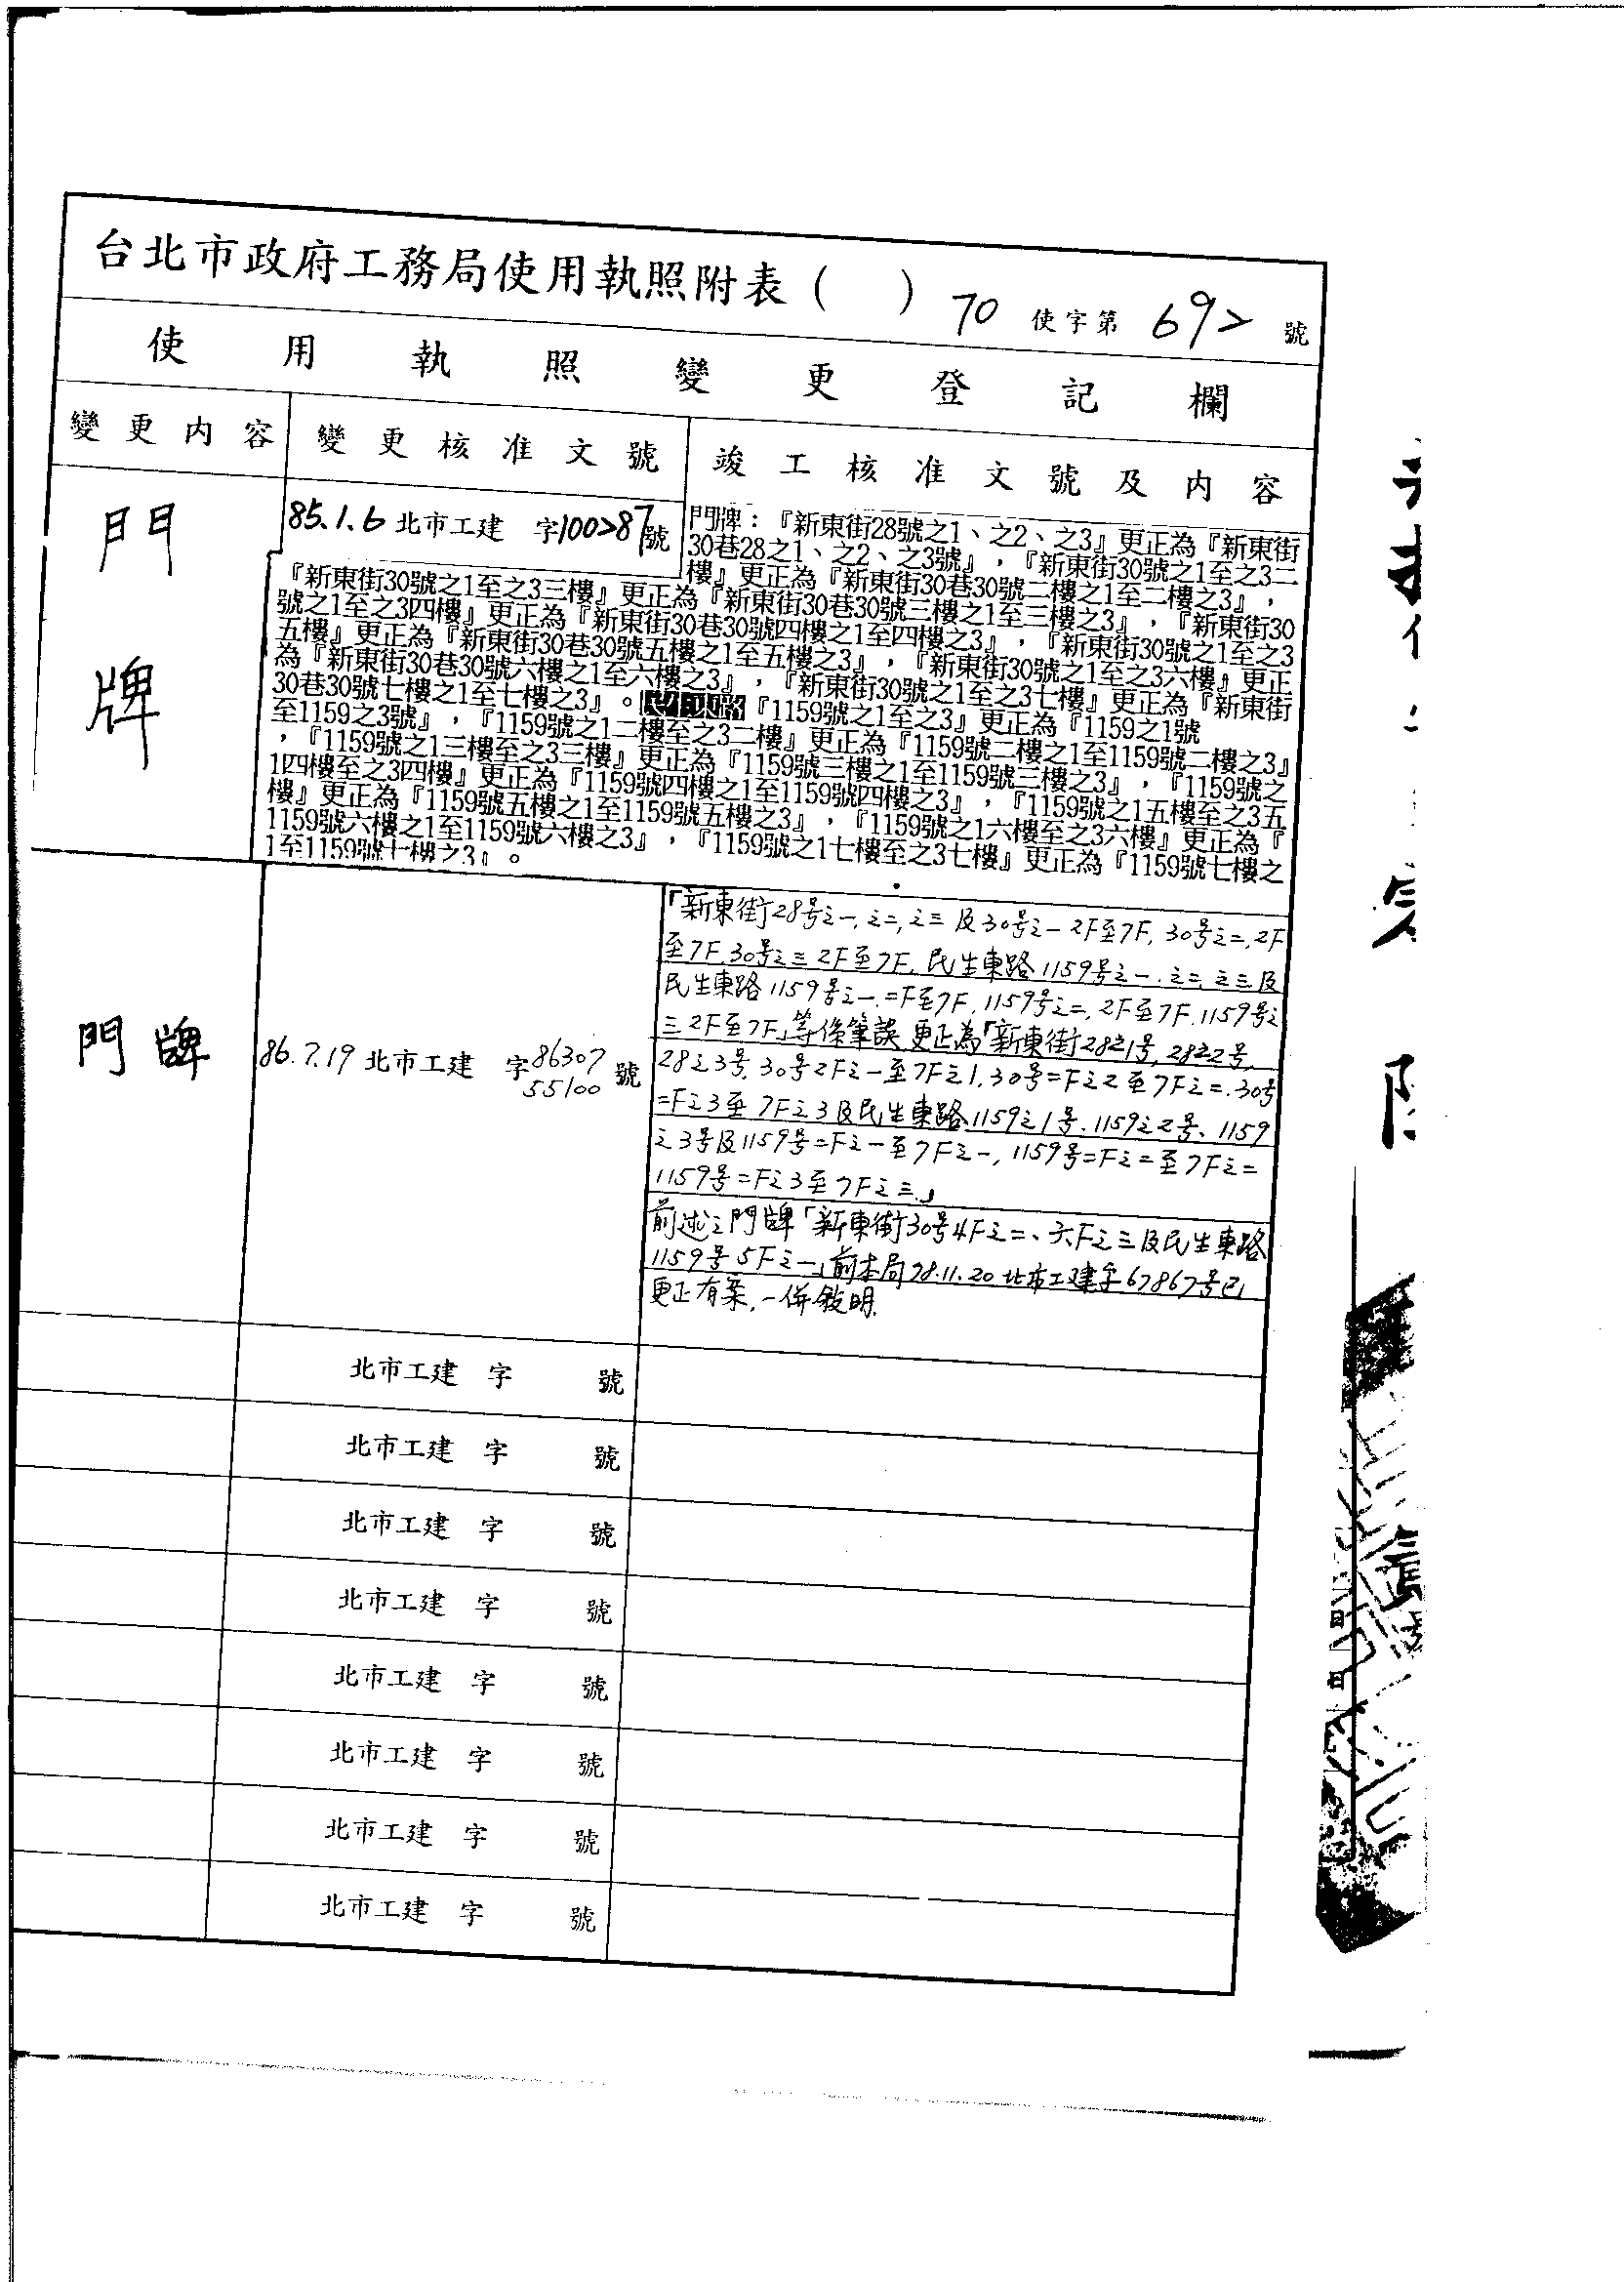 台北市政府工務局使用執照附表（　）70 使字第 692 號
使用執照變更登記欄
變更內容 變更核准文號 竣工核准文號及內容
門牌
85.1.6 北市工建 字100287號
門牌：『新東街28號之1、之2、之3』更正為『新東街
30巷28之1、之2、之3號』，『新東街30號之1至之3二
樓』更正為『新東街30巷30號二樓之1至二樓之3』，
『新東街30號之1至之3三樓』更正為『新東街30巷30號三樓之1至三樓之3』，『新東街30
號之1至之3四樓』更正為『新東街30巷30號四樓之1至四樓之3』，『新東街30號之1至之3
五樓』更正為『新東街30巷30號五樓之1至五樓之3』，『新東街30號之1至之3六樓』更正
為『新東街30巷30號六樓之1至六樓之3』，『新東街30號之1至之3七樓』更正為『新東街
30巷30號七樓之1至七樓之3』。東路『1159號之1至之3』更正為『1159之1號
至1159之3號』，『1159號之1二樓至之3二樓』更正為『1159號二樓之1至1159號二樓之3』
，『1159號之1三樓至之3三樓』更正為『1159號三樓之1至1159號三樓之3』，『1159號之
1四樓至之3四樓』更正為『1159號四樓之1至1159號四樓之3』，『1159號之1五樓至之3五
樓』更正為『1159號五樓之1至1159號五樓之3』，『1159號之1六樓至之3六樓』更正為『
1159號六樓之1至1159號六樓之3』，『1159號之1七樓至之3七樓』更正為『1159號七樓之
1至1159號七樓之3』。
門牌
86.7.19 北市工建 字8630755100號
「新東街28号之一,之二,之三及30号之一2F至7F,30号之二,2F
至7F,30号之三2F至7F,民生東路1159号之一.之二,之三及
民生東路1159号之一.二F至7F.1159号之二,2F至7F.1159号之
三2F至7F」等係筆誤,更正為「新東街28之1号,28之2号,
28之3号,30号2F之一至7F之1,30号二F之2至7F之二.30号
二F之3至7F之3及民生東路1159之1号、1159之2号、1159
之3号及1159号二F之一至7F之一,1159号二F之二至7F之二
1159号二F之3至7F之三」
前述之門牌「新東街30号4F之二、六F之三及民生東路
1159号5F之一」前本局78.11.20北市工建字67867号已
更正有案,一併敘明.
北市工建 字 號
北市工建 字 號
北市工建 字 號
北市工建 字 號
北市工建 字 號
北市工建 字 號
北市工建 字 號
北市工建 字 號